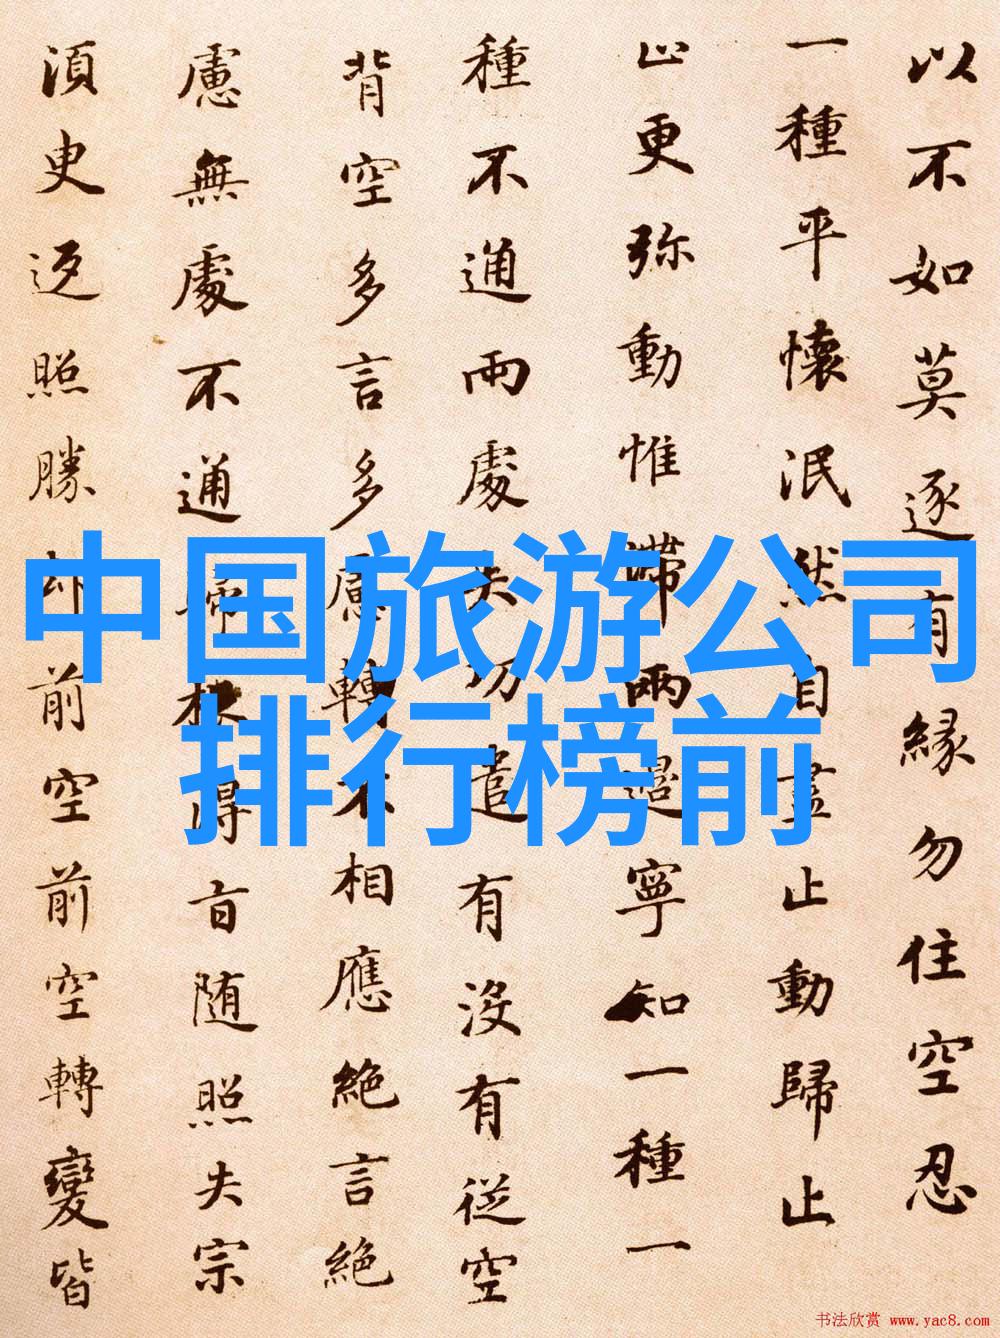 以不如莫逐有緣勿住空忍
一種平懷泯然自盡止動歸止
止更弥動惟滞兩邊寧知一種一
種不通兩處失功遣有没有従空
背空多言多慮轉不相應絶言絶
慮無處不通歸根得旨随照失宗
須臾返照勝却前空前空轉變皆
中国旅游公司
排行榜前
书法欣赏 www.yac8.com